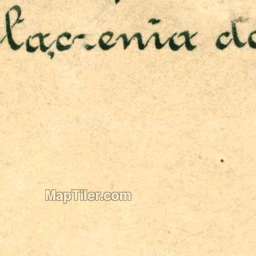 łączenia do
MapTiler.com